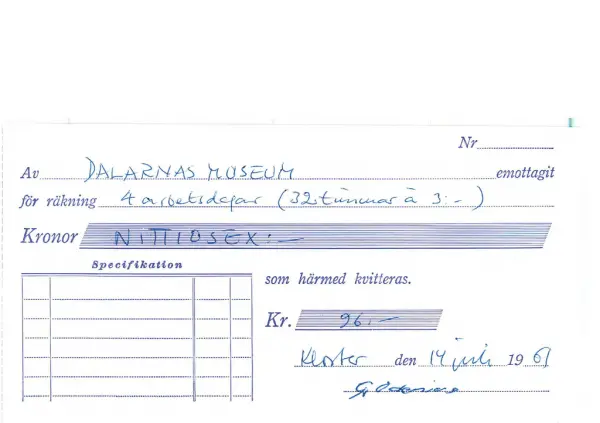 Nr
Av DALARNAS MUSEUM emottagit
för räkning 4 arbetsdagar (32 timmar à 3:-)
Kronor NITTIOSEX:-
Specifikation
som härmed kvitteras.
Kr. 96:-
Kloster den 14 juli 1961